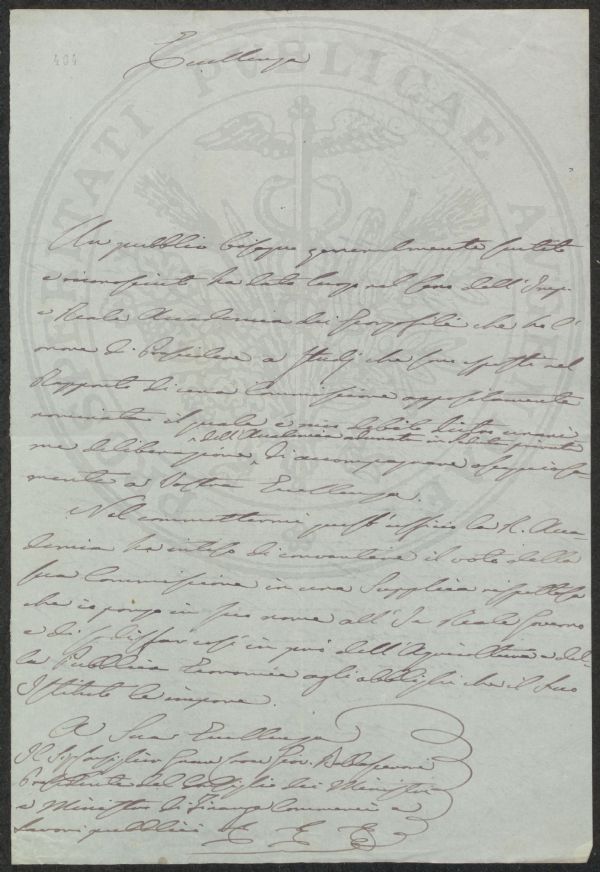 404
Eccellenza
Un pubblico bisogno generalmente sentito
e riconosciuto ha dato luogo nel seno dell'Imp.
e Reale Accademia dei Georgofili che ho l'
onore di Presiedere a studj che sono esposti nel
Rapporto di una Commissione appositamente
nominata il quale è mio debito dietro unani-
me deliberazione dell'Accademia adunata in seduta privata di accompagnare ossequiosa-
mente a Vostra Eccellenza.
Nel commettermi quest'ufficio la R. Acca-
demia ha inteso di convertire il voto della
sua Commissione in una Supplica rispettosa
che io porgo in suo nome all'I. e Reale Governo
e di sodisfar così in pro dell'Agricoltura e del-
la Pubblica Economia agli obblighi che il suo
Istituto le impone.
A Sua Eccellenza
Il Sig. Consigliere Gran Croce Gio. Baldasseroni
Presidente del Consiglio dei Ministri
e Ministro di Finanze Commercio e
Lavori pubblici
PROSPERITATI PUBLICAE AUGENDAE